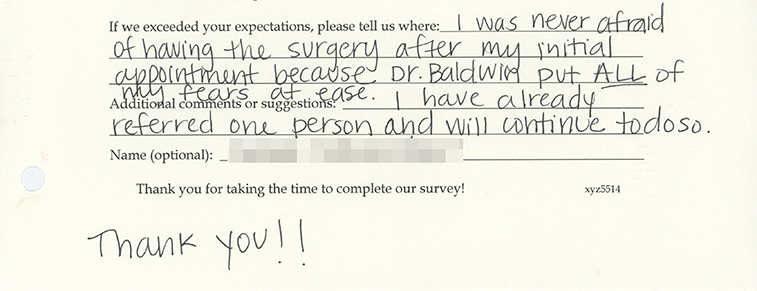 If we exceeded your expectations, please tell us where: I was never afraid
of having the surgery after my initial
appointment because Dr. Baldwin put ALL of
my fears at ease. I have already
Additional comments or suggestions:
referred one person and will continue to do so.
Name (optional):
Thank you for taking the time to complete our survey! xyz5514
Thank you!!